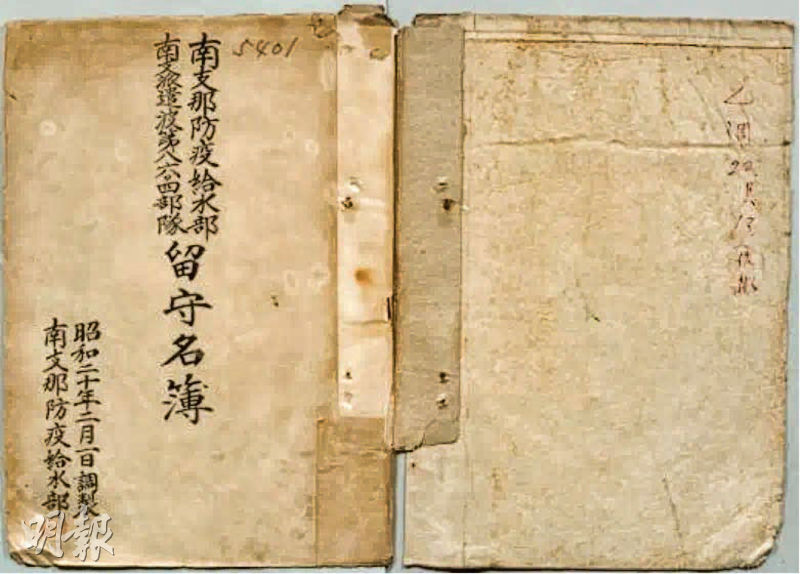 5401
南支那防疫給水部
南支派遣波第八六四部隊
留守名簿
昭和二十年二月一日調製
南支那防疫給水部
明報